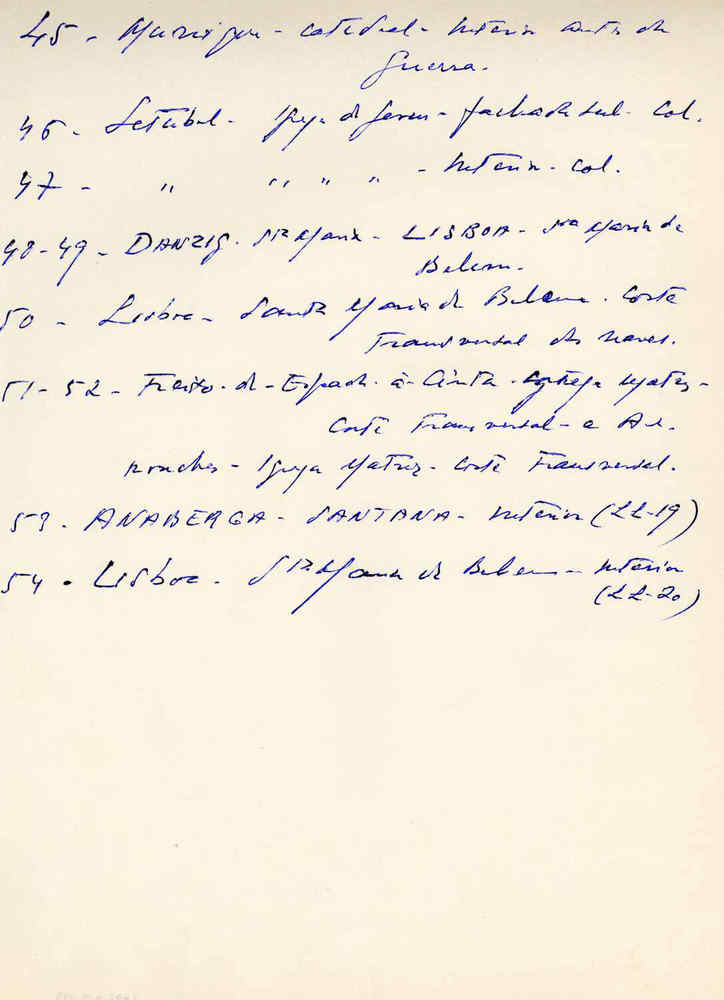 45 - Munique - catedral - interior antes da
guerra.
46 - Setúbal - Igreja de Jesus - fachada sul - col.
47 - " " " " - interior - col.
48-49 - DANZIG - Sta Maria - LISBOA - Sta Maria de
Belem.
50 - Lisboa - Santa Maria de Belem - Corte
transversal das naves.
51-52 - Freixo - de - Espada - à - Cinta - Igreja Matriz -
Corte transversal - e Ar-
ronches - Igreja Matriz - Corte Transversal.
53 - ANABERGA - SANTANA - interior (LL-19)
54 - Lisboa - Sta Maria de Belem - interior
(LL-20)